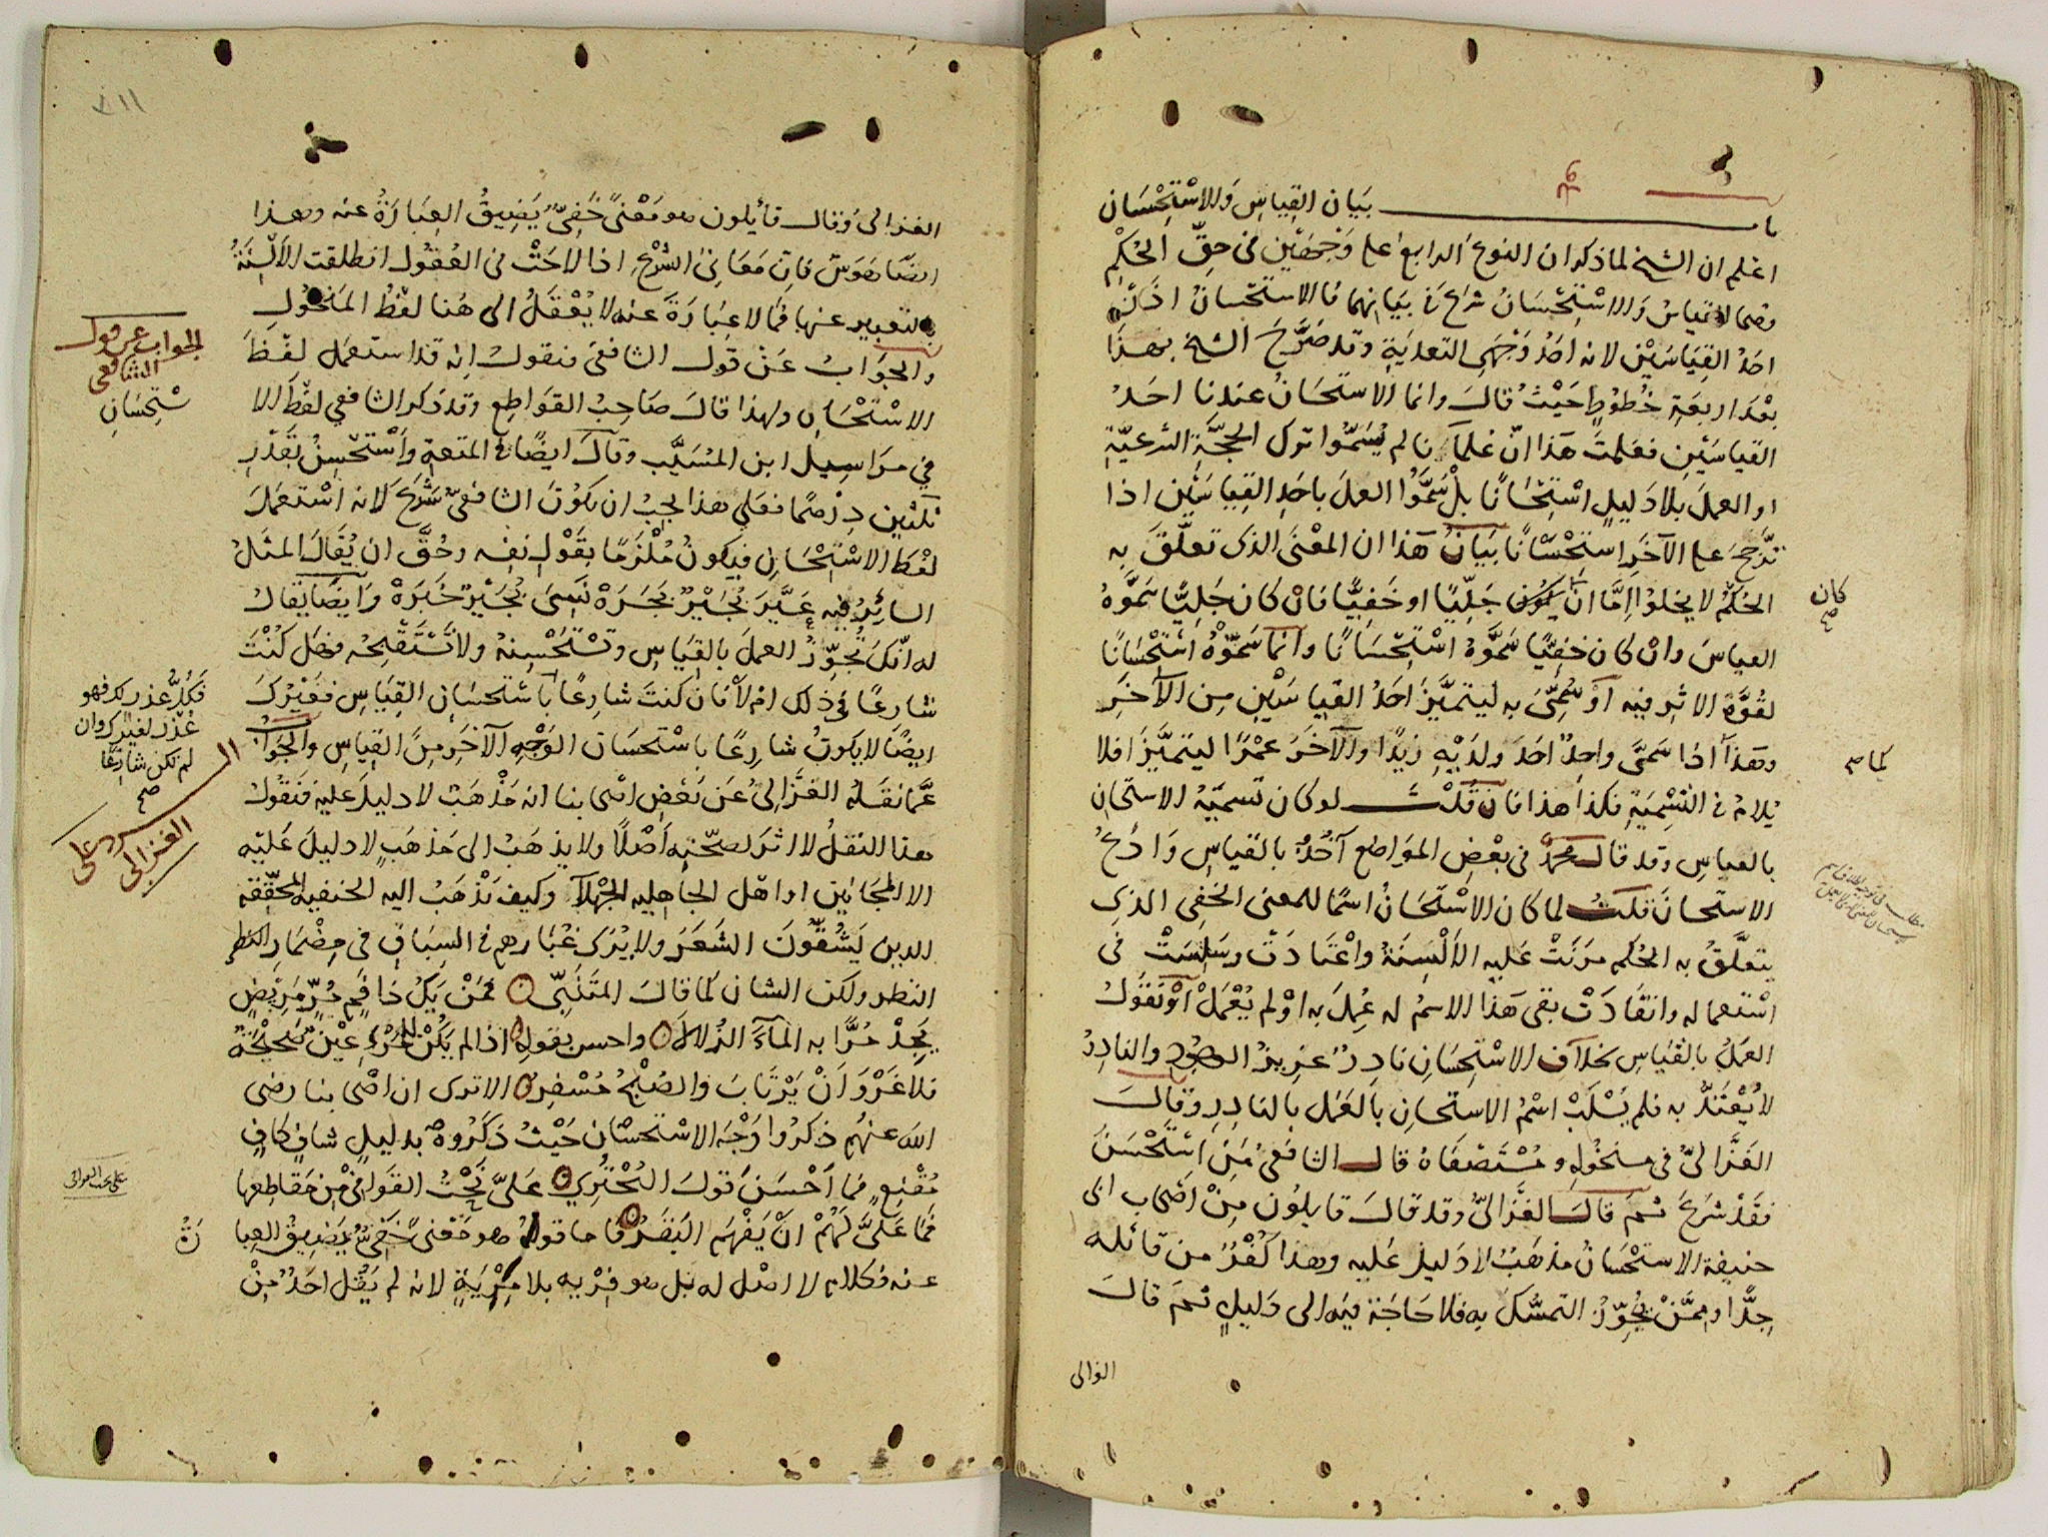 باب بَيَان القِياسِ وَالاسْتِحْسَان
اعْلم ان الشيخ لما ذكر ان النوع الرابع على وَجْهَيْن في حقّ الحُكْم
وهما القياسُ وَالاسْتِحْسَانُ شرَعَ في بيَانهما فالاستحْسانُ اذًا
احَدُ القِيَاسَيْن لانه احَدُ وَجْهَي التعديَةِ وقد صَرَّحَ الشيخ بهذا
بعْدَ اربعَةِ خُطُوطٍ حَيْثُ قالَ وانما الاستحسَانُ عندنا احَدُ
القياسَيْنِ فعَلِمتَ هَذا انّ عُلمَآءنا لم يُسَمّوا ترك الحجَّةِ الشرعيّةِ
او العملَ بلا دَليلٍ اسْتِحْسَانًا بلْ سَمَّوُا العملَ باحَدِ القِيَاسَيْنِ اذا
ترَّجحَ على الآخَرِ استِحْسَانًا بَيَانُ هَذا ان المعْنَى الذى تعلّقَ به
الحُكْمُ لا يخلوا اِمَّا انْ يكون جَليّيًا او خَفِيًّا فانْ كان جَلِيًّا سَمَّوهُ
القياسَ وانْ كان خفِيًّا سَمَّوْهُ اسْتِحْسَانًا وانما سَمَّوْهُ اسْتِحْسَانًا
لقُوَّةِ الاثر فيه اوْ سُمِّىَ به ليَتميَّزَ احَدُ القيَاسَيْنِ مِن الآخَرِ
وهَذا اذا سَمَّى واحِدٌ احَدَ ولدَيْهِ زيْدًا والآخَرَ عمْرًا ليتميَّزَ افلا
يُلامُ في التَّسْمِيَةِ فكذا هذا فان قُلْتَ لو كان تسميَةُ الاستحسان
بالقياس وقد قال محمد في بعْضِ المَوَاضع آخُذُ بالقياسِ وَادَعُ
الاستحسانَ قلتُ لما كان الاسْتحسَانُ اسمًا للمعنى الخَفِى الذى
يتعلَّقُ به الحُكم مرَنَتْ عَليه الأَلْسِنَةُ واعْتَادَتْ وسَلِسَتْ في
اسْتعماله وانقَادَتْ بقى هَذا الاسمُ له عُمِلَ به اوْ لم يُعْمَلْ اوْ نَقولُ
العمَلُ بالقياس بخلافِ الاسْتِحْسَانِ نادِرٌ عَزِيزُ الوجُودِ والنادِرُ
لا يُعْتَدُّ به فلم يُسْلَبْ اسْمُ الاستحسانِ بالعَمَلِ بالنادِرِ وقالَ
الغَزَّالىُّ في منخُولِهِ ومُسْتَصْفَاهُ قال الشافعىُّ مَنِ اسْتَحْسَنَ
فقَدْ شَرَعَ ثمَّ قالَ الغَّزالىُّ وقد قالَ قايلُون مِنْ اصْحَاب ابى
حنيفة الاستحْسَانُ مذهَبٌ لا دَليلَ عَليه وهذا كُفْرٌ من قائله
جِدًّا ومِمَّنْ يُجوِّزُ التمسُّكَ به فلا حَاجَةَ فيه الى دَليلٍ ثمّ قالَ
الغزالى
كان صح
كما صح
الغزالى وقال قائلون هو مَعْنًى خَفِىٌّ يَضِيقُ العِبَارَةُ عنه وهذا
ايضًا هَوَسٌ فان مَعَانىَ الشَّرْعِ اذا لاحَتْ في العُقُول انطلقت الأَلْسِنَةُ
بالتعبير عنها فما لا عِبَارَةَ عنه لا يُعْقَلُ الى هُنا لفظُ المَنخُولِ
والجَوَابُ عَنْ قول الشافعى فنقولُ انه قد استعمَل لفْظَ
الاسْتحْسَانِ ولهذا قالَ صَاحِبُ القوَاطِعِ وقد ذكر الشافعي لفظَ الا
في مرَاسِيل ابن المُسَيَّب وقالَ ايضًا في المتعةِ واَسْتَحْسِنُ بقَدْرِ
ثلثين دِرْهمًا فعَلى هذا يجبُ ان يكونَ الشافعىُّ شَرَعَ لانه اسْتعمَلَ
لفْظَ الاسْتِحْسَانِ فيكونُ مُلْزَمًا بقَوْلِ نفسِهِ وحُقَّ ان يُقَالَ المثَلُ
السائِرُ فيه عَيَّرَ بُجَيْرٌ بُجَرَهْ نَسِىَ بُجَيْرٌ خَبَرَهْ وَايضًا يقالُ
له انّكَ تُجَوِّزُ العملَ بالقياسِ وتسْتَحْسِنهُ ولا تَسْتَقْبِحُه فهَل كُنْتَ
شارعًا في ذلك ام لا فان كنتَ شارِعًا باسْتحسَانِ القِيَاسِ فغَيْرُكَ
ايضًا لا يكونُ شارِعًا باسْتحسَان الوَجْهِ الآخَرِ مِنَ القيَاسِ والجَوَابُ
عَمَّا نقَلَهُ الغزَّالىُّ عَن بَعْضِ اصْحابنا انه مَذْهَبٌ لا دليلَ عليه فنقُولُ
هذا النقلُ لا اثرَ لصحّتِهِ اَصْلًا ولا يذهَبُ الى مَذهَبٍ لا دليلَ عَليْه
الا المجَانين او اهْل الجاهليه الجُهَلآ وكيف يَذْهَبُ اليه الحنفيه المحقِّقه
الذين يَشُقُّونَ الشَّعَرَ ولا يُدْرَك غُبَارهم في السِبَاق في مِضْمَارِ النظر
النظر ولكن الشان كما قالَ المتَنَبّى فمَنْ يَكُ ذا فَمٍ مُرٍّ مَرِيضٍ
يَجِدْ مُرًّا به المَآءَ الزُلالَا واحسن بقوله اذا لم يَكُنْ للمَرْءِ عَيْنٌ صَحيْحَةٌ
فلا غَرْوَ اَنْ يَرْتَابَ والصُبْحُ مُسْفِرُ الا ترى ان اصْحابنا رضى
الله عنهُم ذكرُوا وَجْهَ الاستحسَان حَيْثُ ذكَرُوهُ بدليلٍ شافٍ كافٍ
مُقْنِعٍ فما اَحْسَنَ قولَ البُحْتُرِي عَلىَّ نَحْتُ القَوَافى مِنْ مَقاطِعها
فما عَلىَّ لهُمْ انْ يَفْهَم البَقَرُ فاما قوله هو مَعْنىً خَفِىٌّ يضيقُ العِبا
عنه فكلام لا اصْل له بل هو فِرْيه بلا مِرْيَةٍ لانه لم يَقُل احَدٌ مِنْ
الجواب عن قول
الشافعى
سْتِحسَانِ
فَكُلُّ عذر لك فهو
عُذْر لغيرك وان
لم تكن شارعًا
صح
الرد على
الغزالى
رَةُ